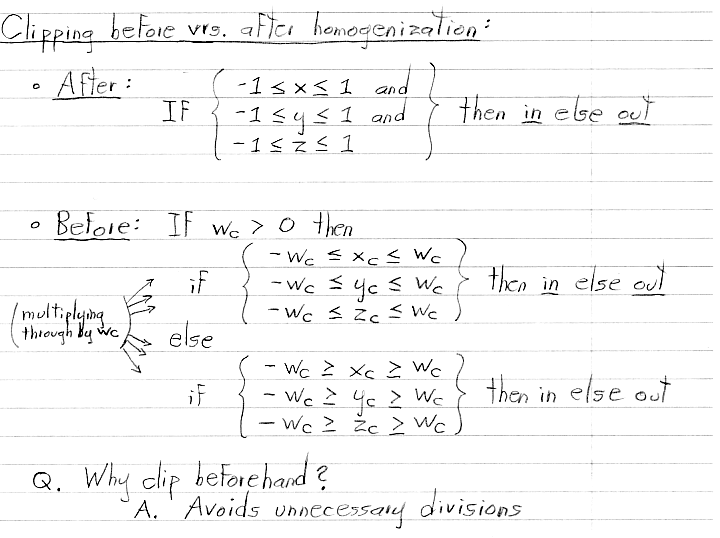 Clipping before vrs. after homogenization:
• After:
IF { -1 ≤ x ≤ 1 and
-1 ≤ y ≤ 1 and
-1 ≤ z ≤ 1 } then in else out
• Before: If wc > 0 then
if { -wc ≤ xc ≤ wc
-wc ≤ yc ≤ wc
-wc ≤ zc ≤ wc } then in else out
(multiplying
through by wc)
else
if { -wc ≥ xc ≥ wc
-wc ≥ yc ≥ wc
-wc ≥ zc ≥ wc } then in else out
Q. Why clip beforehand?
A. Avoids unnecessary divisions